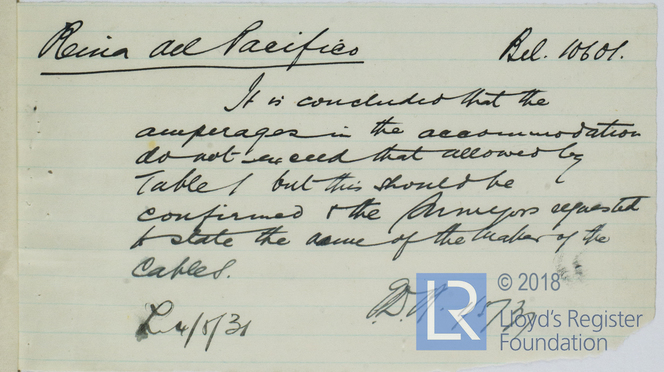 Reina del Pacifico Bel. 10601.
It is concluded that the
amperages in the accommodation
do not exceed that allowed by
Table 1 but this should be
confirmed & the Surveyors requested
to state the name of the Maker of the
Cables.
4/5/31
LR
© 2018
Lloyd's Register
Foundation